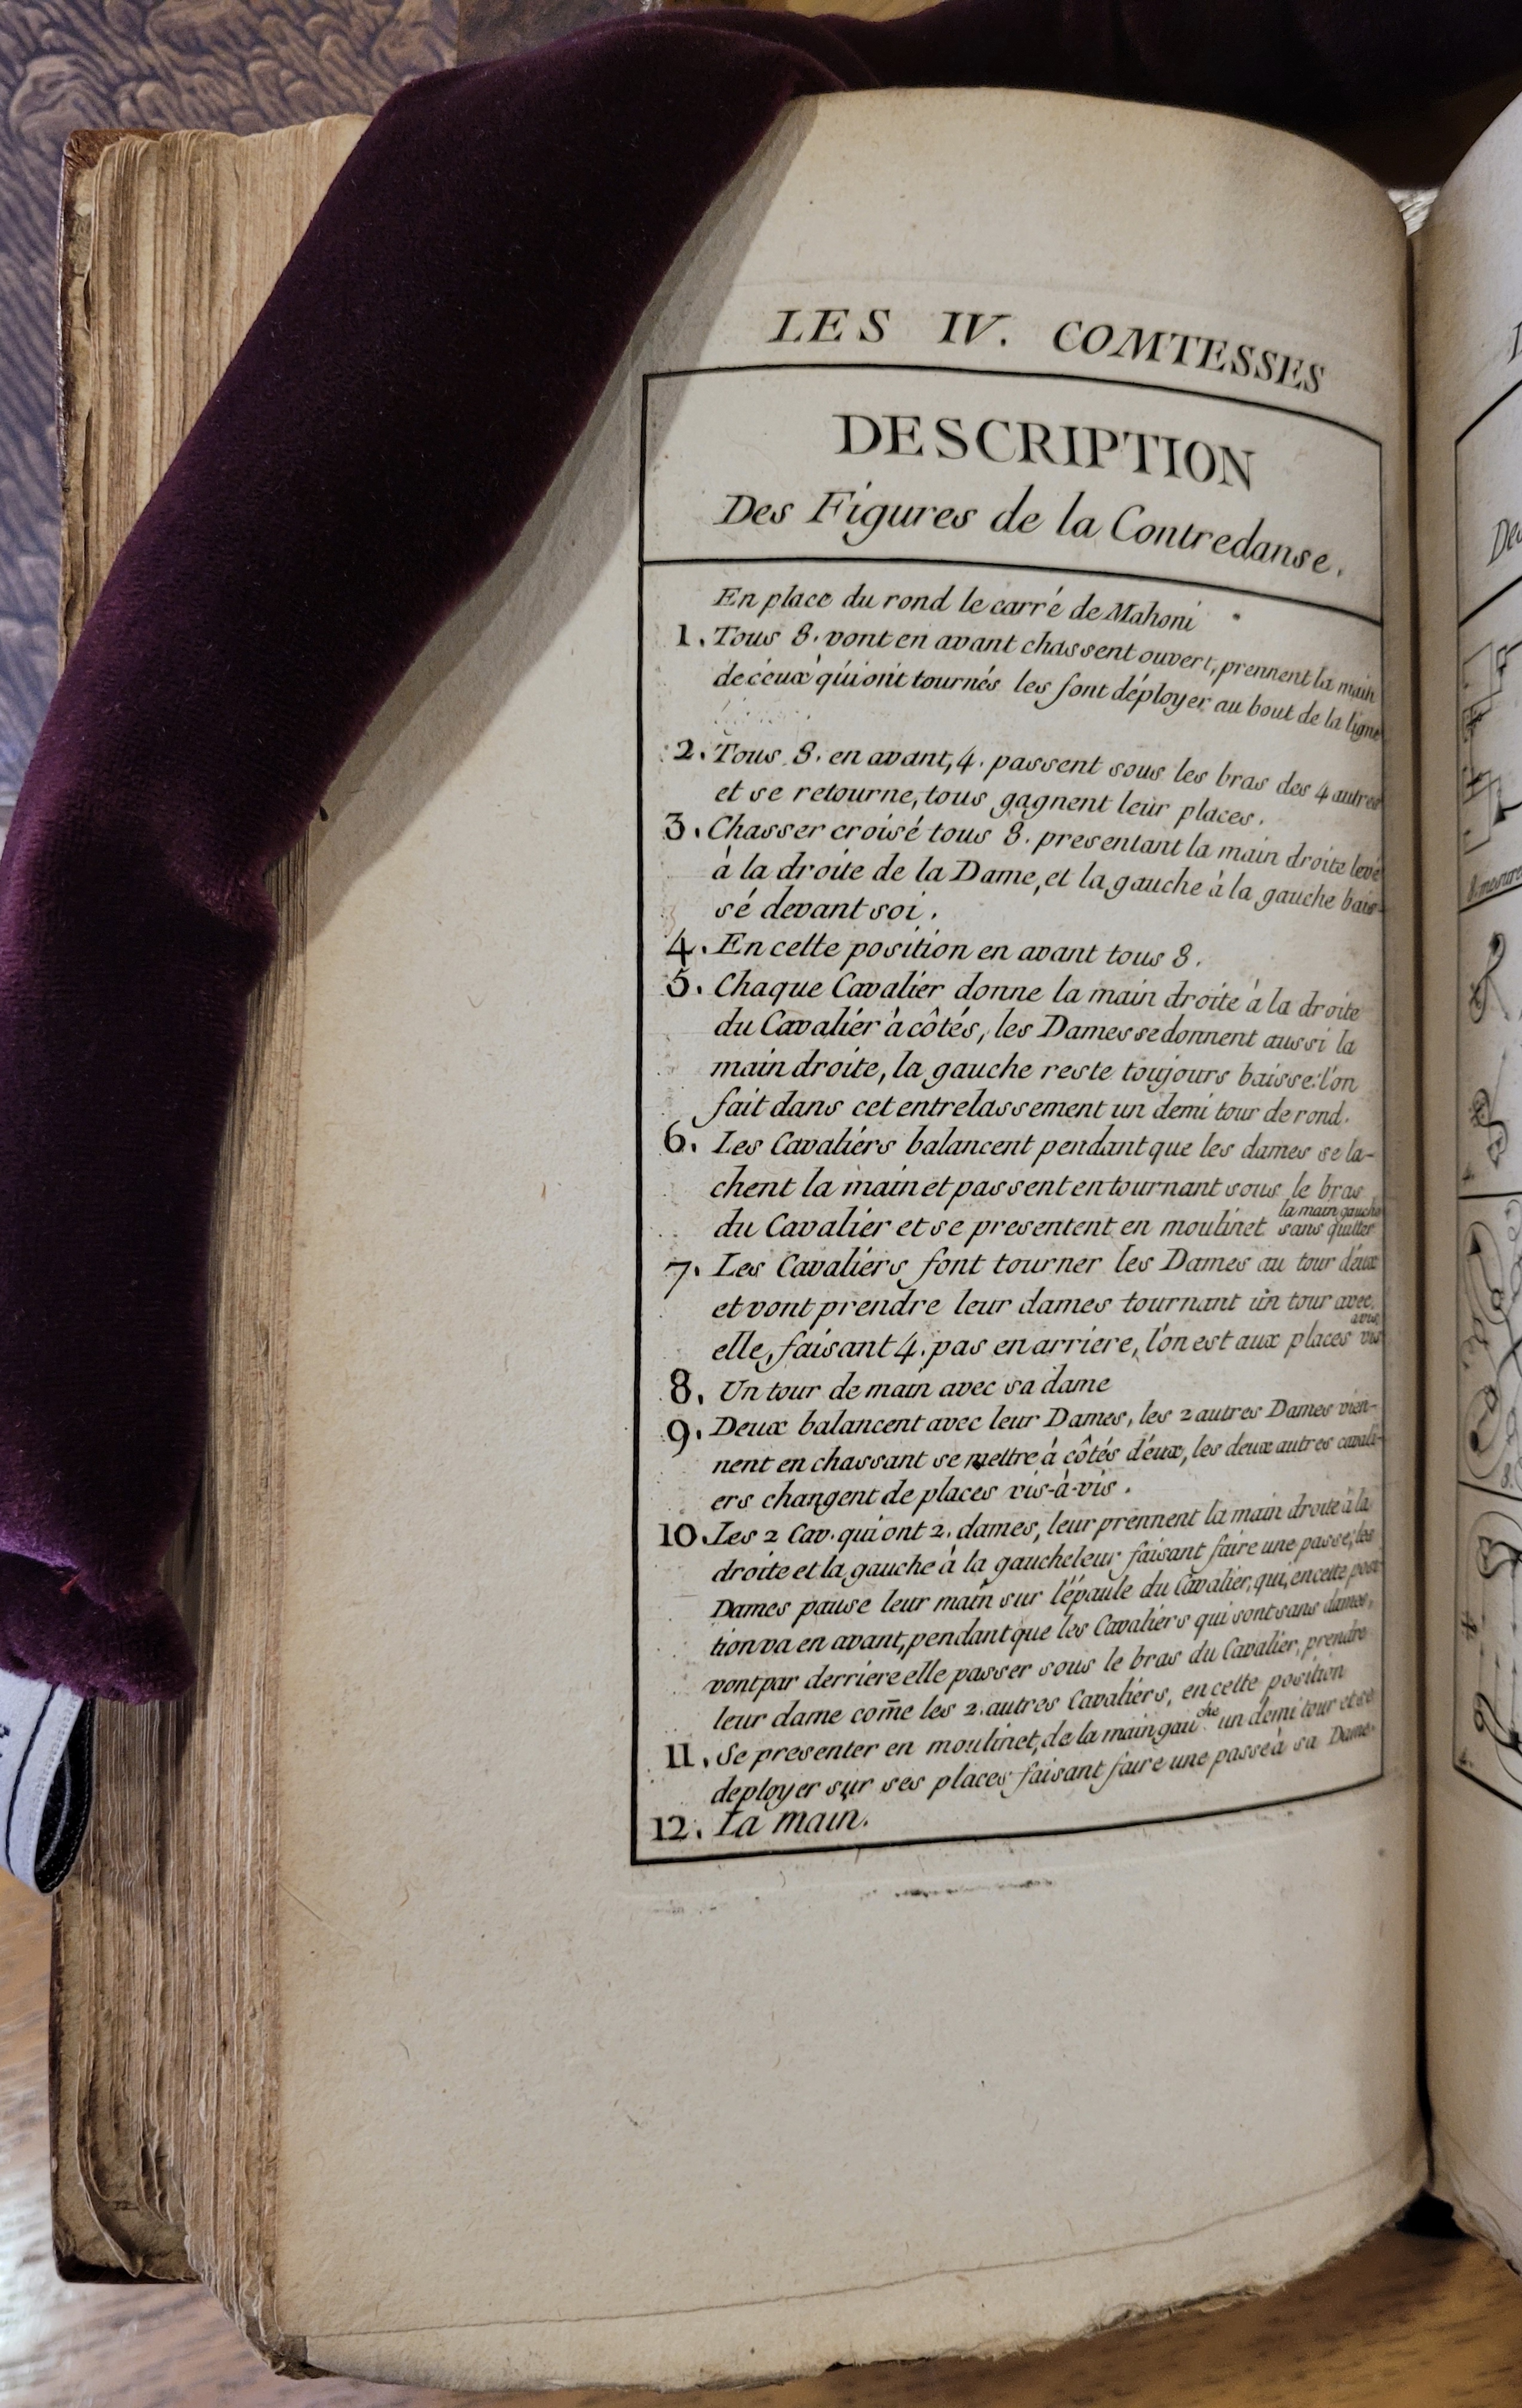 LES IV. COMTESSES
DESCRIPTION
Des Figures de la Contredanse.
En place du rond le carré de Mahoni
1. Tous 8. vont en avant chassent ouvert, prennent la main
de ceux qui ont tournés les font déployer au bout de la ligne
2. Tous 8. en avant, 4. passent sous les bras des 4 autres
et se retourne, tous gagnent leur places.
3. Chasser croisé tous 8. presentant la main droite levé
à la droite de la Dame, et la gauche à la gauche bais-
sé devant soi.
4. En cette position en avant tous 8.
5. Chaque Cavalier donne la main droite à la droite
du Cavaliér à côtés, les Dames se donnent aussi la
main droite, la gauche reste toujours baisse: l'on
fait dans cet entrelassement un demi tour de rond.
6. Les Cavaliérs balancent pendant que les dames se la-
chent la main et passent en tournant sous le bras
du Cavalier et se presentent en moulinet sans quitter la main gauche
7. Les Cavaliérs font tourner les Dames au tour d'eux
et vont prendre leur dames tournant un tour avec
elle, faisant 4. pas en arriere, l'on est aux places vis avis
8. Un tour de main avec sa dame
9. Deux balancent avec leur Dames, les 2 autres Dames vien-
nent en chassant se mettre à côtés d'eux, les deux autres cavali-
ers changent de places vis-à-vis.
10. Les 2 Cav. qui ont 2. dames, leur prennent la main droite à la
droite et la gauche à la gauche leur faisant faire une passe, les
Dames pause leur main sur l'épaule du Cavalier, qui, en cette posi
tion va en avant, pendant que les Cavaliérs qui sont sans dames,
vont par derriere elle passer sous le bras du Cavalier, prendre
leur dame com̄e les 2. autres Cavaliérs, en cette position
11. Se presenter en moulinet, de la main gauche un demi tour et se
deployer sur ses places faisant faire une passe à sa Dame.
12. La main.